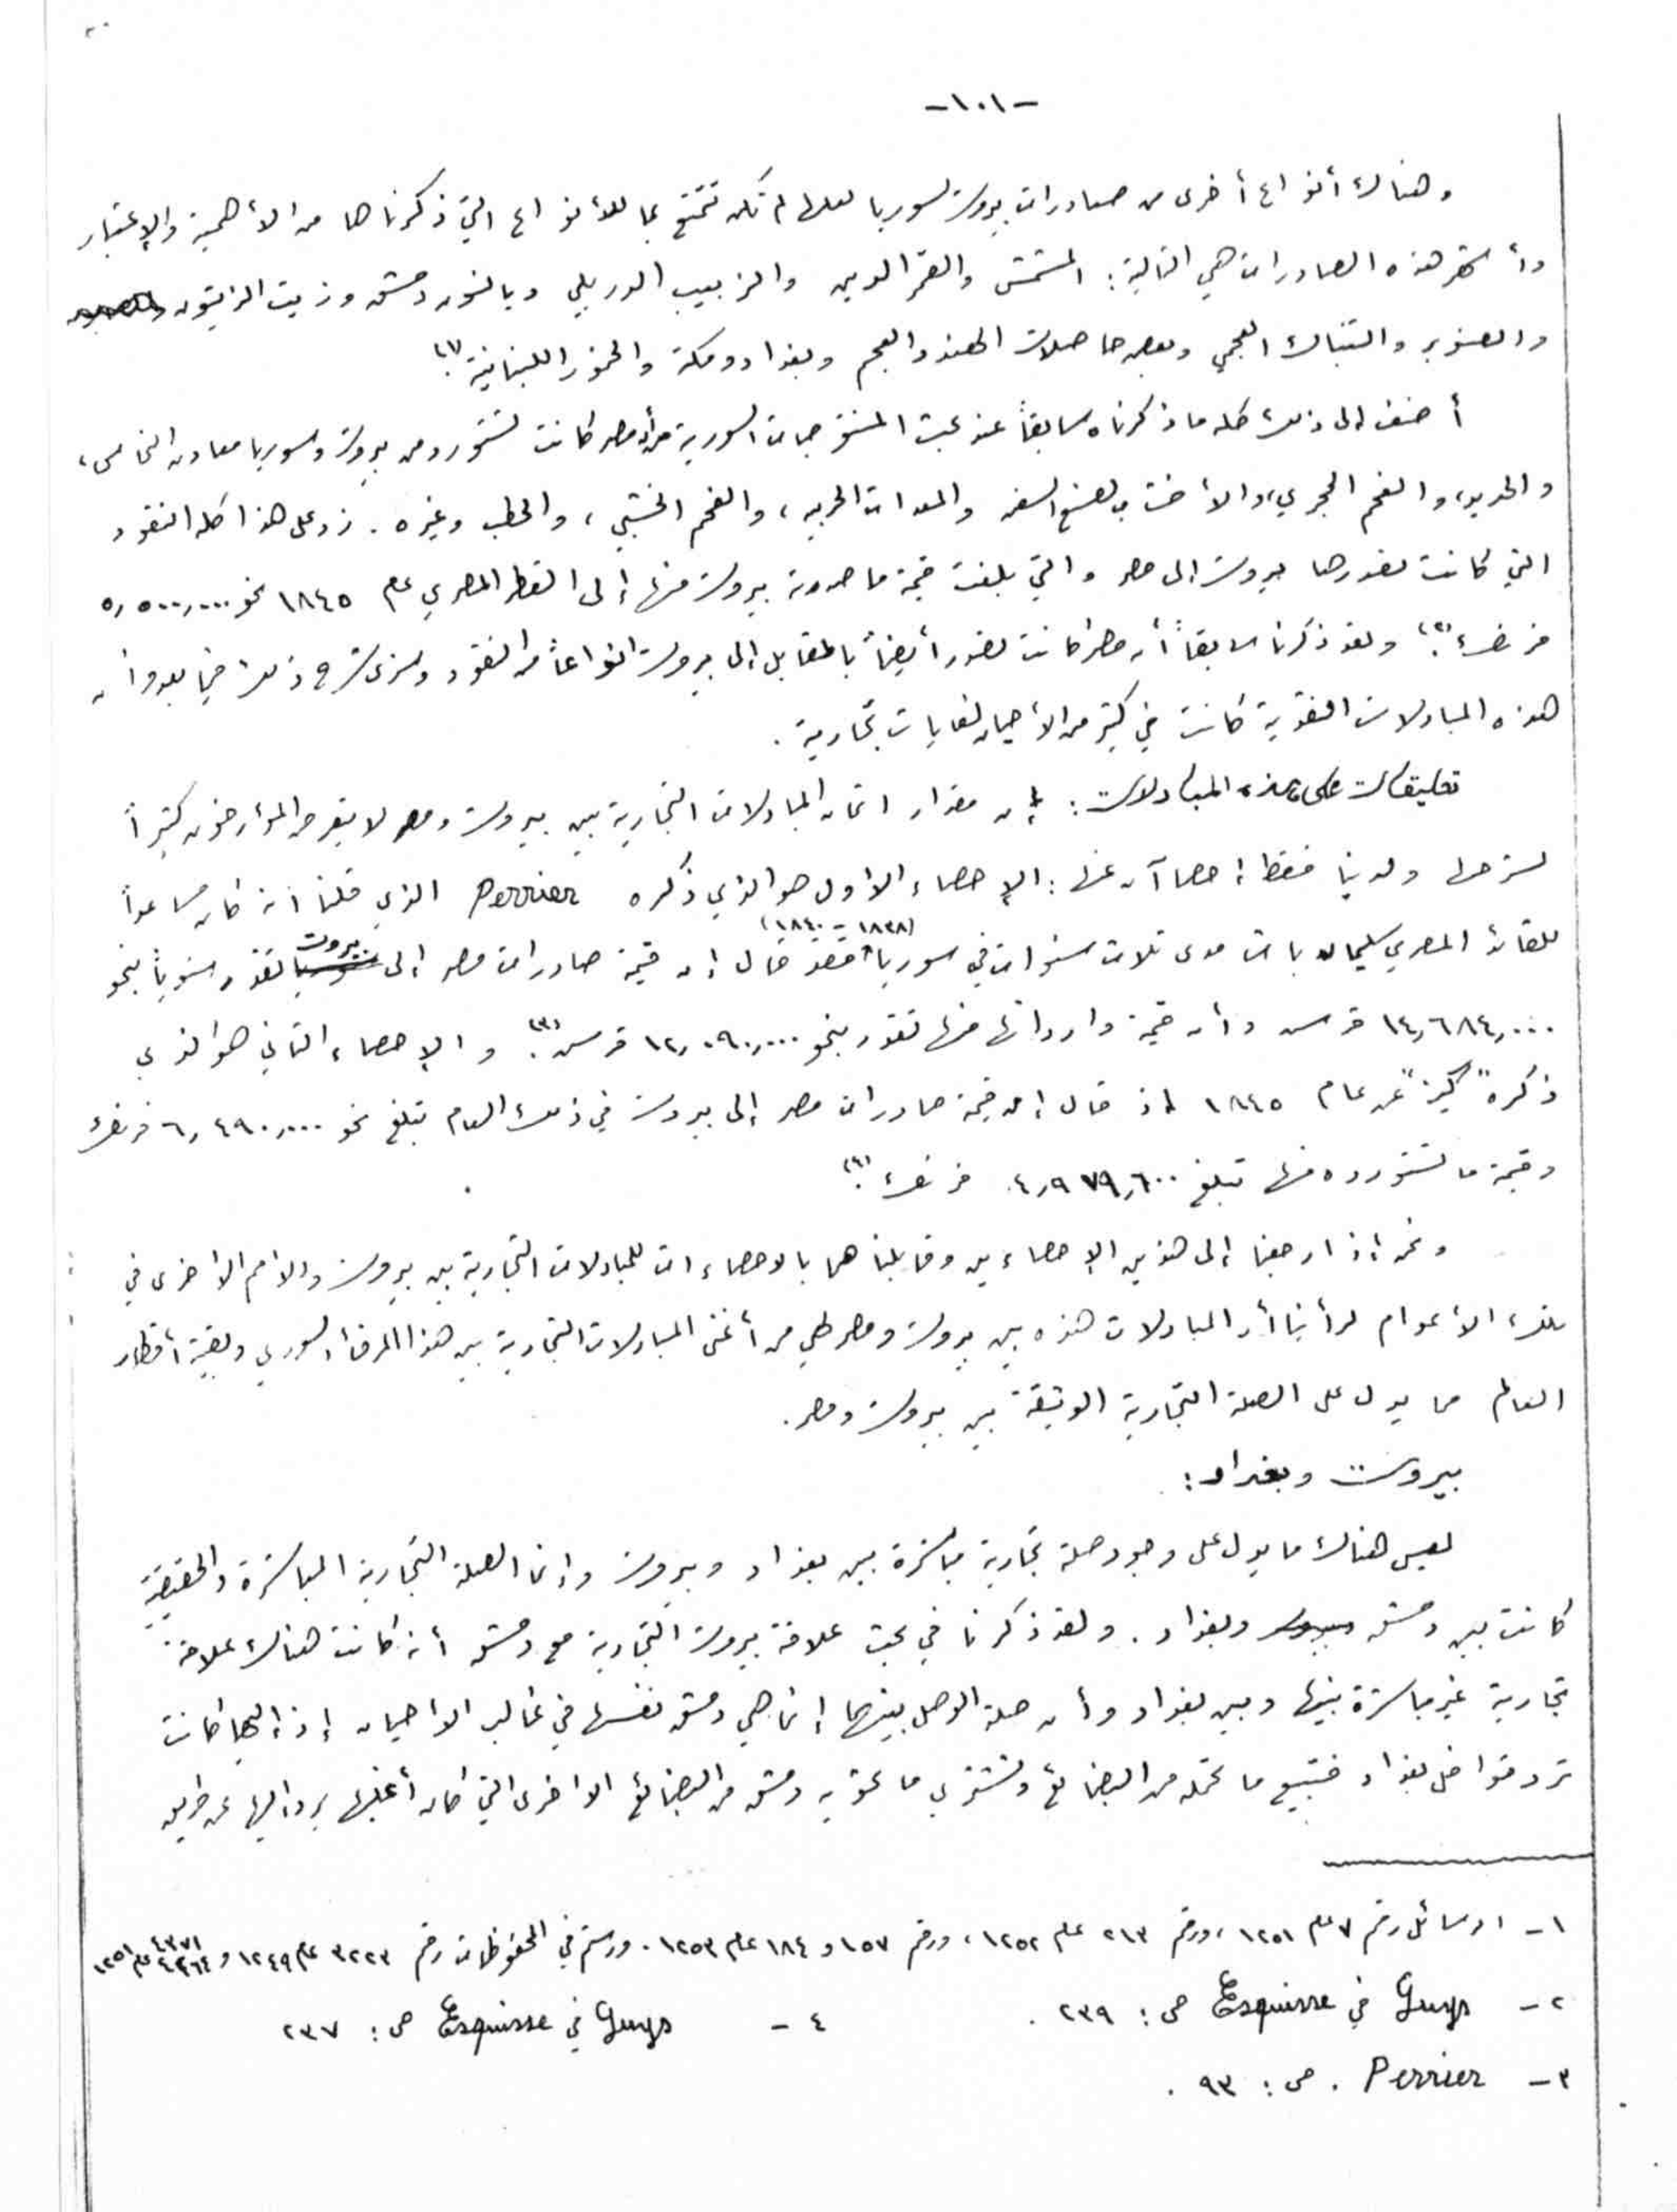 -١٠١-
وهناك أنواع أخرى من صادرات بيروت لسوريا لعلها لم تكن تتمتع بما للأنواع التي ذكرناها من الأهمية والإعتبار
وأشهر هذه الصادرات هي التالية: المشمش والقمر الدين والزبيب الدربلي ديانسون دمشق وزيت الزيتون
والصنوبر والتنباك العجمي وبعض حاصلات الهند والعجم وبغداد ومكة والخمور اللبنانية (١).
أضف إلى ذلك كله ما ذكرناه سابقاً عند بحث المنتوجات السورية من أن مصر كانت تستورد من بيروت وسوريا معادن النحاس،
والحديد، والفحم الحجري، والأخشاب لصنع السفن والمعدات الحربية، والفحم الخشبي، والحطب وغيره. زد على هذا كله النقود
التي كانت تصدرها بيروت إلى مصر والتي بلغت قيمة ما صدرته بيروت منها إلى القطر المصري عام ١٨٤٥ نحو ٥,٥٠٠,٠٠٠
فرنك (٢). ولقد ذكرنا سابقاً أن مصر كانت تصدر أيضاً بالمقابل إلى بيروت انواعاً من النقود وسنرى شرح ذلك فيما بعد وأن
هذه المبادلات النقدية كانت في كثير من الأحيان لغايات تجارية.
تعليقات على هذه المبادلات: إن مقدار اثمان المبادلات التجارية بين بيروت ومصر لا يتعرض المؤرخون كثيراً
لشرحها ولدينا فقط إحصاآن عنها: الإحصاء الأول هو الذي ذكره Perrier الذي قلنا انه كان مساعداً
للقائد المصري سليمان باشا مدى ثلاث سنوات في سوريا (١٨٣٨ - ١٨٤٠) فقد قال إن قيمة صادرات مصر إلى بيروت تقدر سنوياً بنحو
١٤,٦٨٤,٠٠٠ قرش وأن قيمة وارداتها منها تقدر بنحو ١٢,٠٩٠,٠٠٠ قرش (٣). والإحصاء الثاني هو الذي
ذكره "كيز" عن عام ١٨٤٥ اذ قال إن قيمة صادرات مصر إلى بيروت في ذلك العام تبلغ نحو ٦,٤٩٠,٠٠٠ فرنك
وقيمة ما تستورده منها تبلغ ٤,٩٧٩,٦٠٠ فرنك (٤).
ونحن إذا رجعنا إلى هذين الإحصاءين وقابلناهما بالاحصاءات للمبادلات التجارية بين بيروت والامم الاخرى في
تلك الأعوام لرأينا أن المبادلات هذه بين بيروت ومصر هي من أغنى المبادلات التجارية بين هذا المرفأ السوري وبقية أقطار
العالم مما يدل على الصلة التجارية الوثيقة بين بيروت ومصر.
بيروت وبغداد:
ليس هناك ما يدل على وجود صلة تجارية مباشرة بين بغداد وبيروت وإنما الصلة التجارية المباشرة والحقيقية
كانت بين دمشق وبغداد. ولقد ذكرنا في بحث علاقة بيروت التجارية مع دمشق أنه كانت هناك علاقة
تجارية غير مباشرة بينها وبين بغداد وأن صلة الوصل بينهما إنما هي دمشق نفسها في غالب الاحيان إذ إليها كانت
ترد قوافل بغداد فتبيع ما تحمله من البضائع وتشتري ما تحتويه دمشق من البضائع الاخرى التي كان أغلبها يرد إليها عن طريق
١- ارسائل رقم ٧ عام ١٢٥١، ورقم ٢١٣ عام ١٢٥٢، ورقم ١٥٧ و ١٨٤ عام ١٢٥٣. ورستم في المحفوظات رقم ٣٢٢٣ عام ١٢٤٩ و ٤٣٧١ ٤٣٦٤ عام ١٢٥١
٢- Guys في Esquisse ص: ٢٣٩.
٤- Guys في Esquisse ص: ٢٣٧
٣- Perrier. ص: ٩٣.